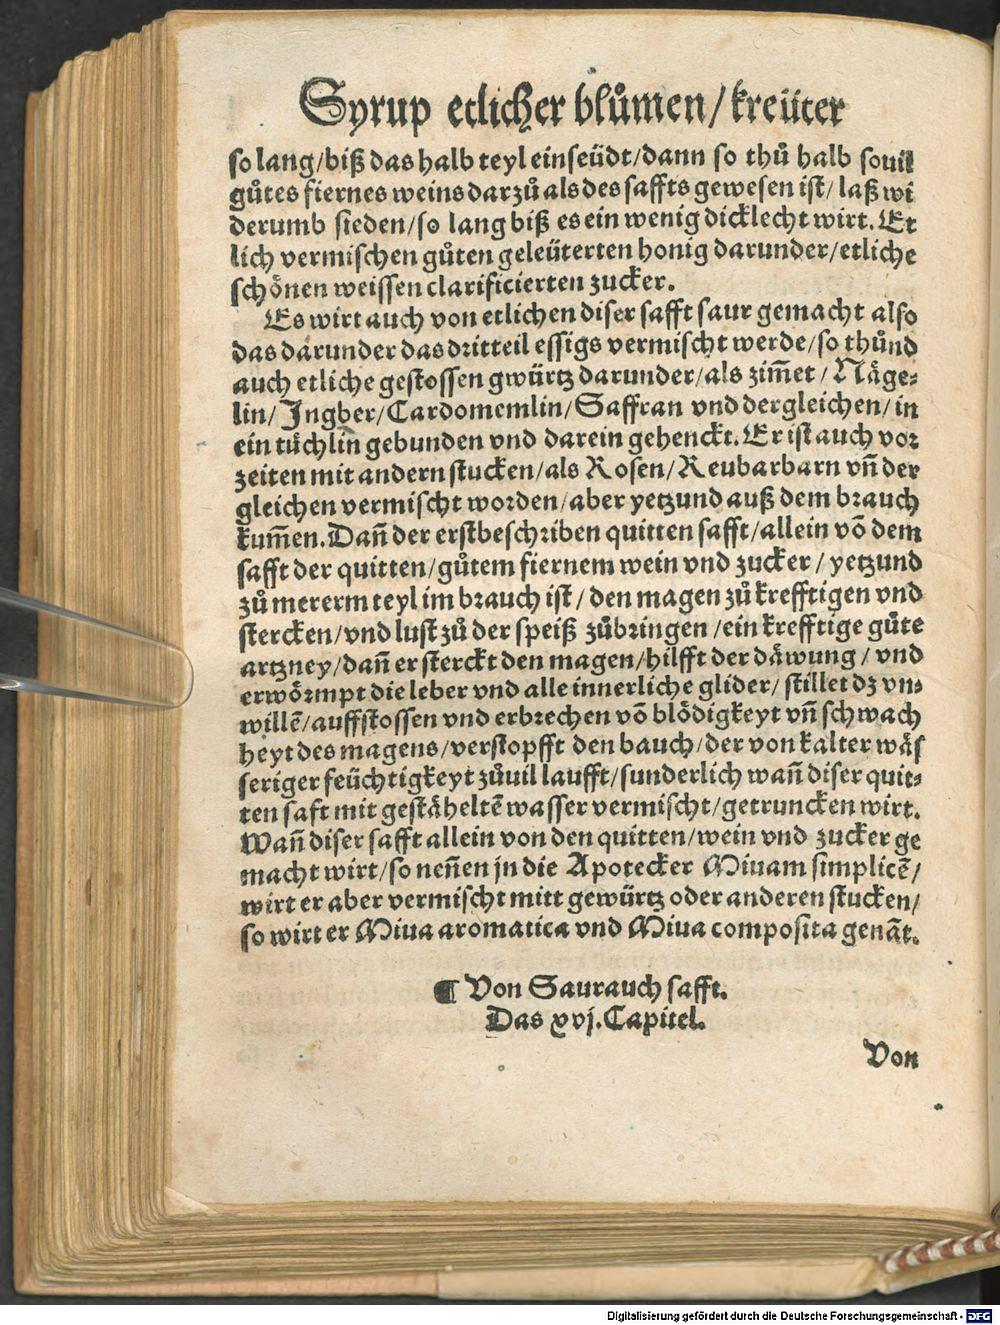 Syrup etlicher blůmen/kreüter
so lang/biß das halb teyl einseüdt/dann so thů halb souil
gůtes fiernes weins darzů als des saffts gewesen ist/laß wi
derumb sieden/so lang biß es ein wenig dicklecht wirt. Et
lich vermischen gůten geleüterten honig darunder/etliche
schönen weissen clarificierten zucker.
Es wirt auch von etlichen diser safft saur gemacht also
das darunder das dritteil essigs vermischt werde/so thůnd
auch etliche gestossen gwürtz darunder/als zim̃et/Näge⸗
lin/Jngber/Cardomemlin/Saffran vnd dergleichen/in
ein tüchlin gebunden vnd darein gehenckt. Er ist auch vor
zeiten mit andern stucken/als Rosen/Reubarbarn vñ der
gleichen vermischt worden/aber yetzund auß dem brauch
kum̃en. Dañ der erstbeschriben quitten safft/allein võ dem
safft der quitten/gůtem fiernem wein vnd zucker/yetzund
zů mererm teyl im brauch ist/den magen zů krefftigen vnd
stercken/vnd lust zů der speiß zůbringen/ein krefftige gůte
artzney/dañ er sterckt den magen/hilfft der däwung/vnd
erwörmpt die leber vnd alle innerliche glider/stillet dz vn⸗
willẽ/auffstossen vnd erbrechen võ blödigkeyt vñ schwach
heyt des magens/verstopfft den bauch/der von kalter wäs
seriger feüchtigkeyt zůuil laufft/sunderlich wañ diser quit⸗
ten saft mit gestäheltẽ wasser vermischt/getruncken wirt.
Wañ diser safft allein von den quitten/wein vnd zucker ge
macht wirt/so neñen jn die Apotecker Miuam simplicẽ/
wirt er aber vermischt mitt gewürtz oder anderen stucken/
so wirt er Miua aromatica vnd Miua composita genãt.
¶ Von Saurauch safft.
Das xvj. Capitel.
Von
Digitalisierung gefördert durch die Deutsche Forschungsgemeinschaft - DFG